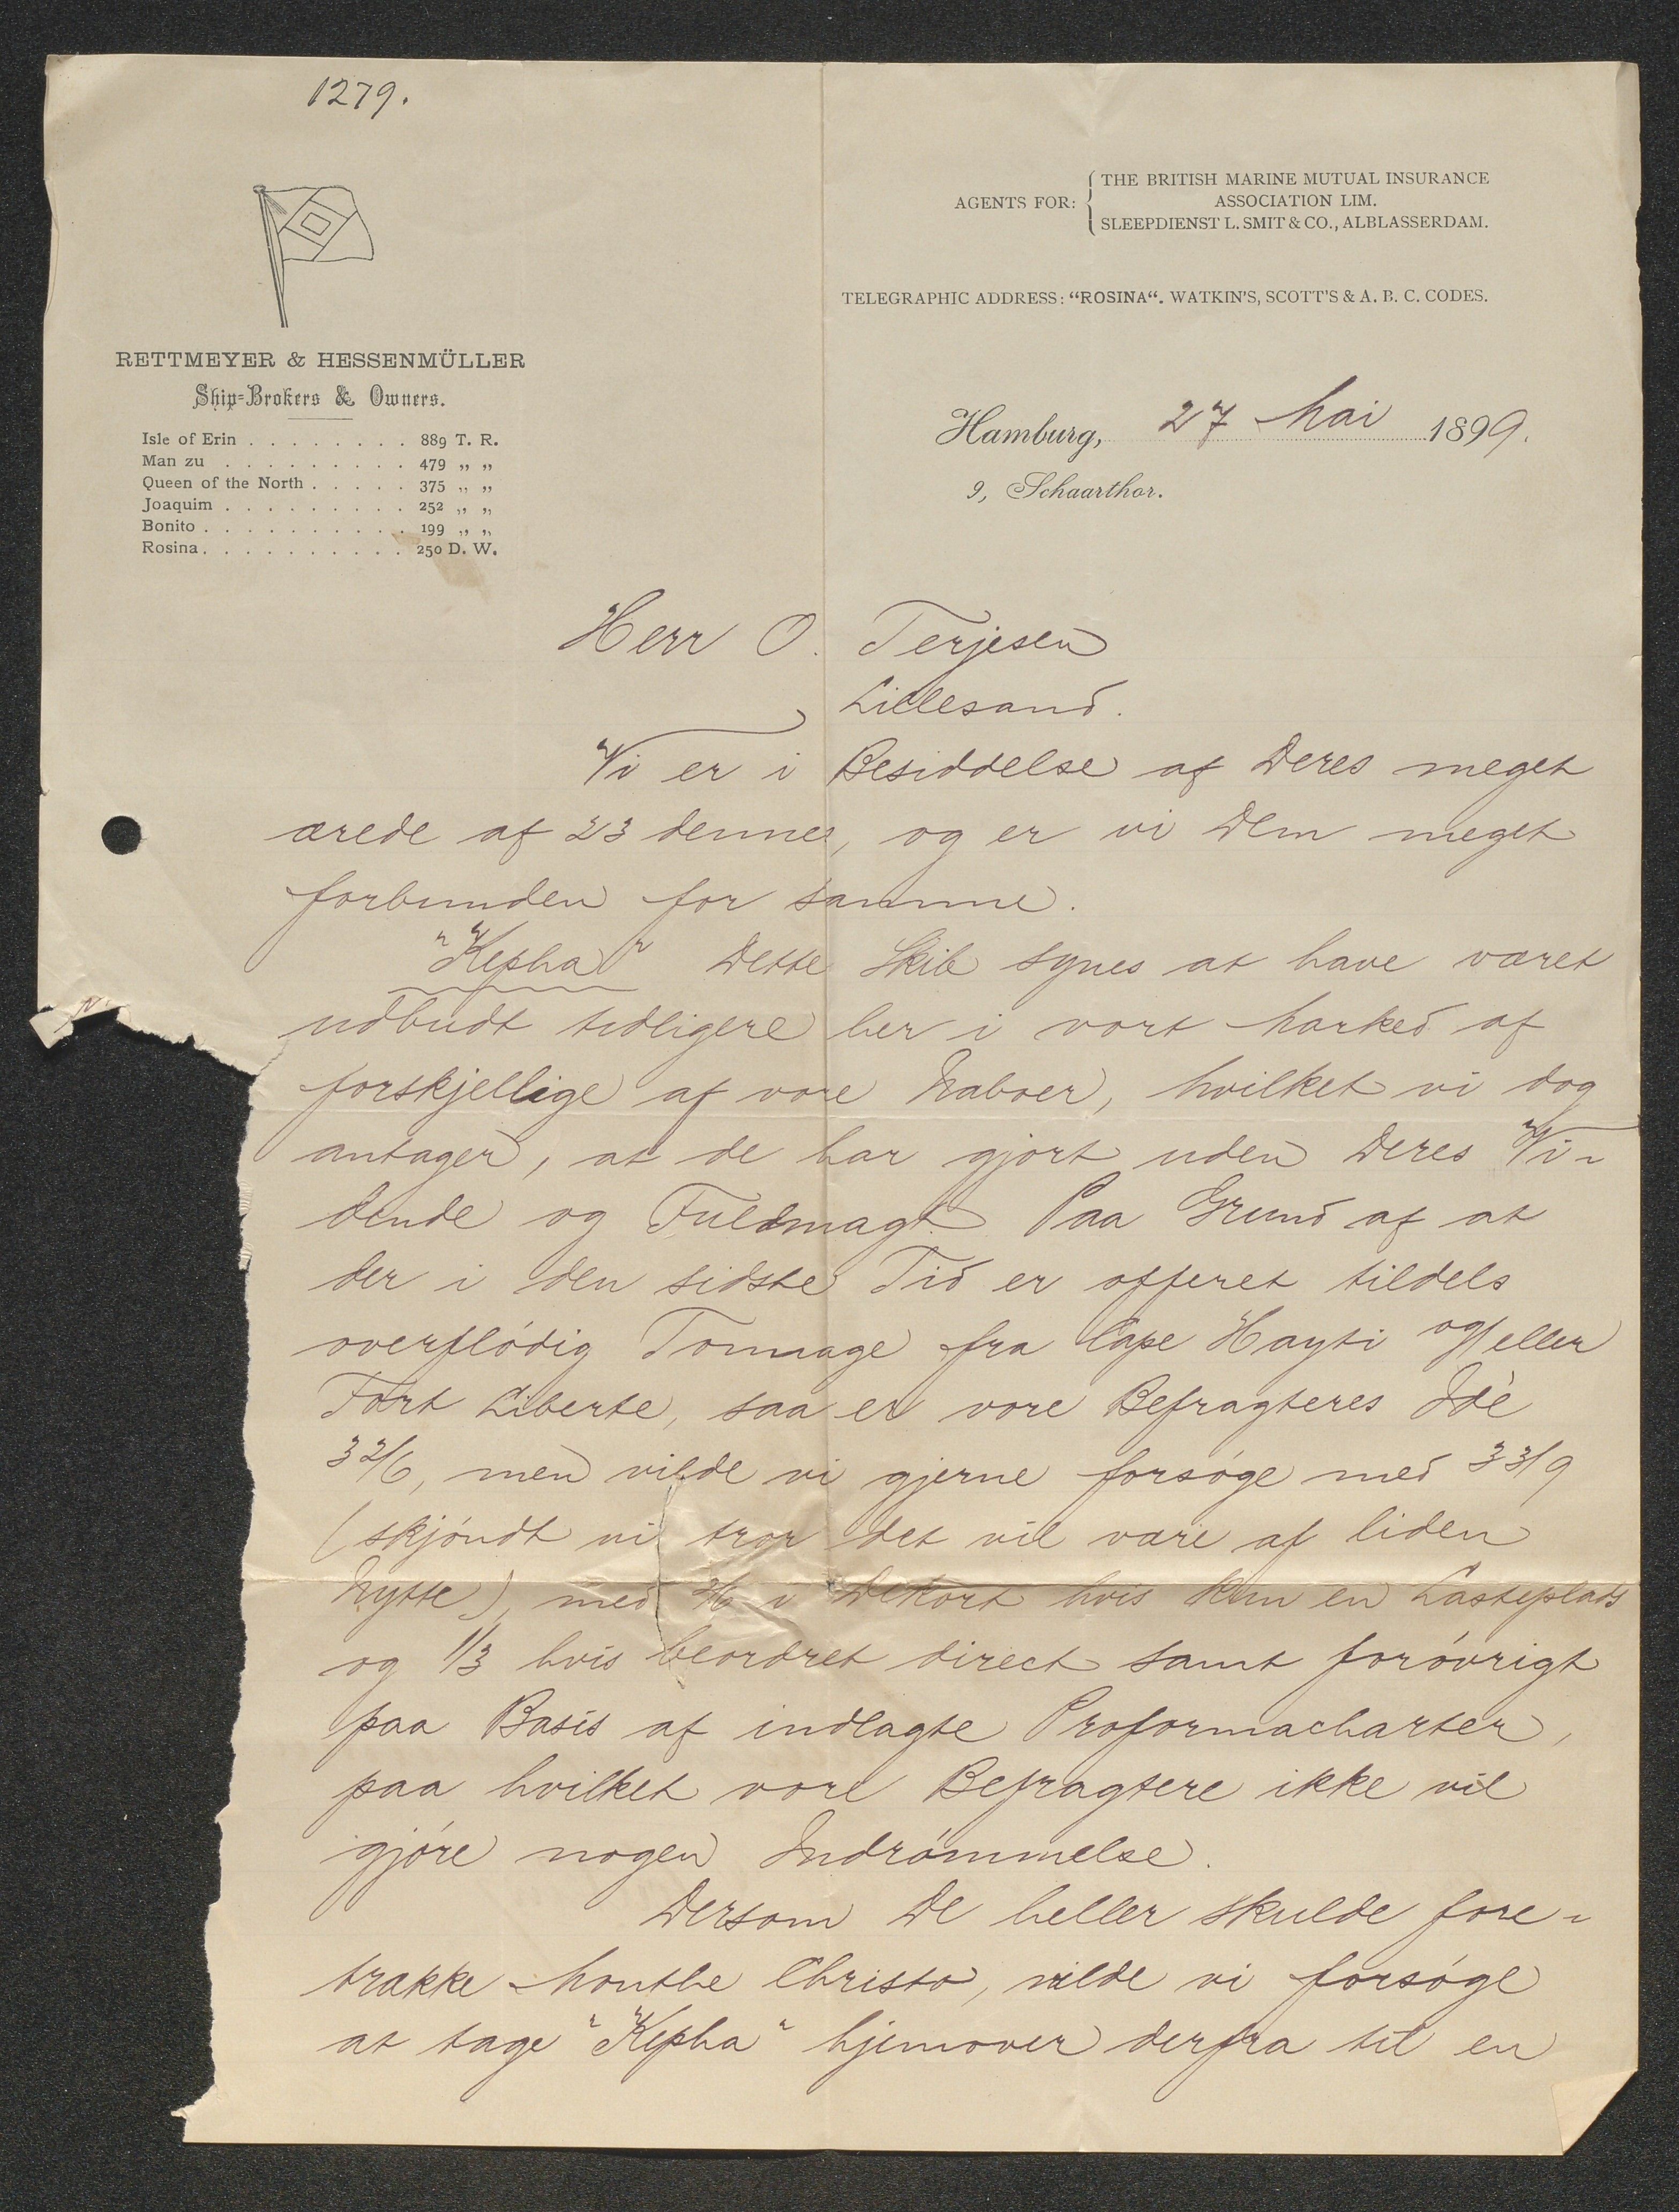 1279.
AGENTS FOR:
THE BRITISH MARINE MUTUAL INSURANCE
ASSOCIATION LIM.
SLEEPDIENST L. SMIT & CO., ALBLASSERDAM.
TELEGRAPHIC ADDRESS: “ROSINA“. WATKIN'S, SCOTT'S & A. B. C. CODES.
RETTMEYER & HESSENMÜLLER
Ship-Brokers & Owners.
Isle of Erin . . . . . . . . 889 T. R.
Man zu . . . . . . . . . 479 „ „
Queen of the North . . . . . 375 „ „
Joaquim . . . . . . . . . 252 „ „
Bonito . . . . . . . . . . 199 „ „
Rosina . . . . . . . . . . 250 D. W.
Hamburg, 27 Mai 1899.
9, Schaarthor.
Herr O. Terjesen
Lillesand.
Vi er i Besiddelse af Deres meget
ærede af 23 dennes, og er vi Dem meget
forbunden for samme.
"Kepha" Dette Skib synes at have været
udbudt tidligere her i vort Marked af
forskjellige af vore Naboer, hvilket vi dog
antager, at de har gjort uden Deres Vi-
dende og Fuldmagt. Paa Grund af at
der i den sidste Tid er offeret tildels
overflódig Tonnage fra Cape Hayti og/eller
Fort Liberte, saa er vore Befragteres Idé
32/6, men vilde vi gjerne forsóge med 33/9
(skjóndt vi tror det vil være af liden
Nytte), med 2/6 i Dekort hvis kun en Lasteplads
og 1/3 hvis beordret direct samt foróvrigt
paa Basis af indlagte Proformacharter,
paa hvilket vore Befragtere ikke vil
gjóre nogen Indrómmelse.
Dersom De heller skulde fore-
trække Monthe Christo, vilde vi forsóge
at tage "Kepha" hjemover derfra til en